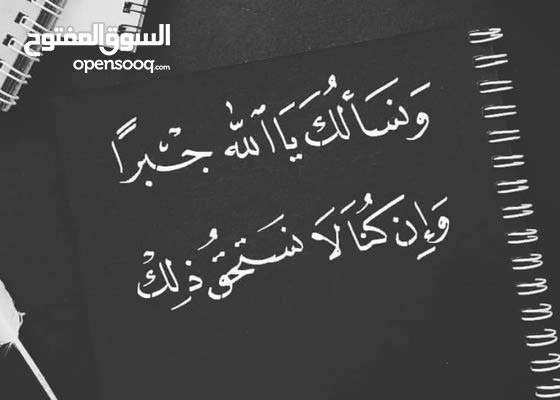 السوق المفتوح
opensooq.com
وَنَسَألُكَ يَا ٱللّٰه جَبْرًا
وَإِن كُنَّا لَا نَستَحقُ ذٰلِكْ